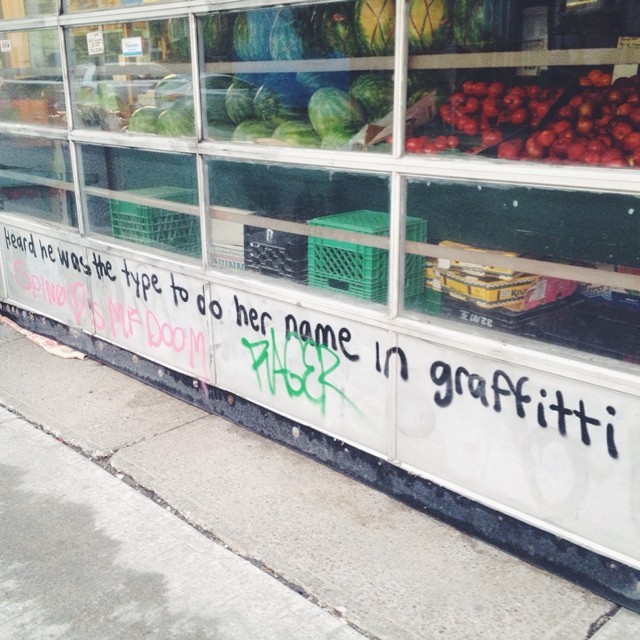 Heard he was the type to do her name in graffitti
SPINO ♡'S MF DOOM